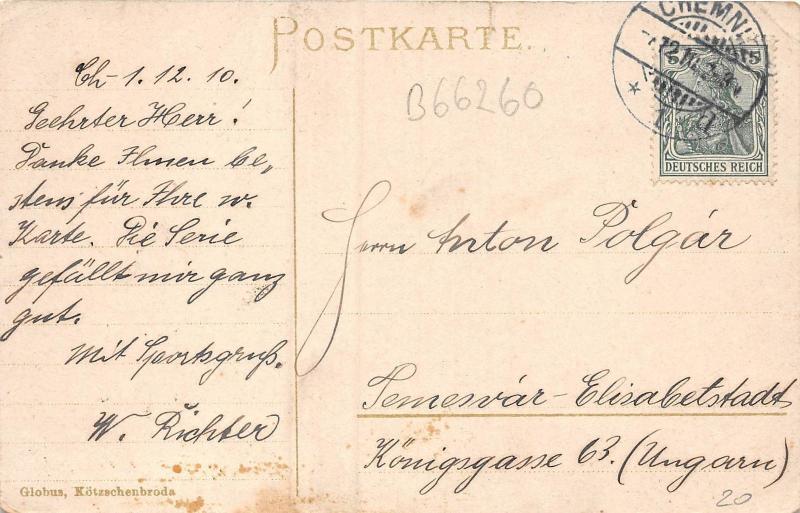 POSTKARTE.
Ch- 1. 12. 10.
Geehrter Herr!
Danke Ihnen be„
stens für Ihre w.
Karte. Die Serie
gefällt mir ganz
gut.
Mit Sportsgruß.
W. Richter
Globus, Kötzschenbroda
B66260
CHEMNI
5
DEUTSCHES REICH
Herrn Anton Polgár
Temesvár-Elisabetstadt
Königsgasse 63. (Ungarn)
20